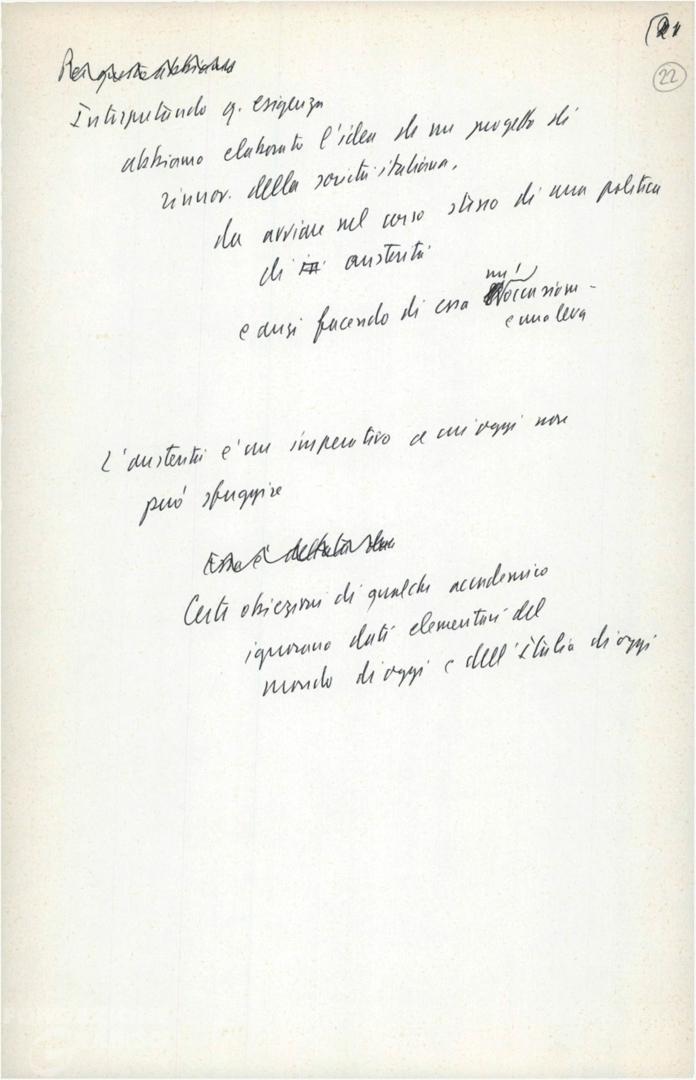 22
Per questo abbiamo
Interpretando q. esigenza
abbiamo elaborato l'idea di un progetto di
rinnov. della società italiana,
da avviare nel corso stesso di una politica
di austerità
un'
e anzi facendo di essa occasione
e una leva
L'austerità è un imperativo a cui oggi non
può sfuggire
Essa è dettata
Certe obiezioni di qualche accademico
ignorano dati elementari del
mondo di oggi e dell'Italia di oggi